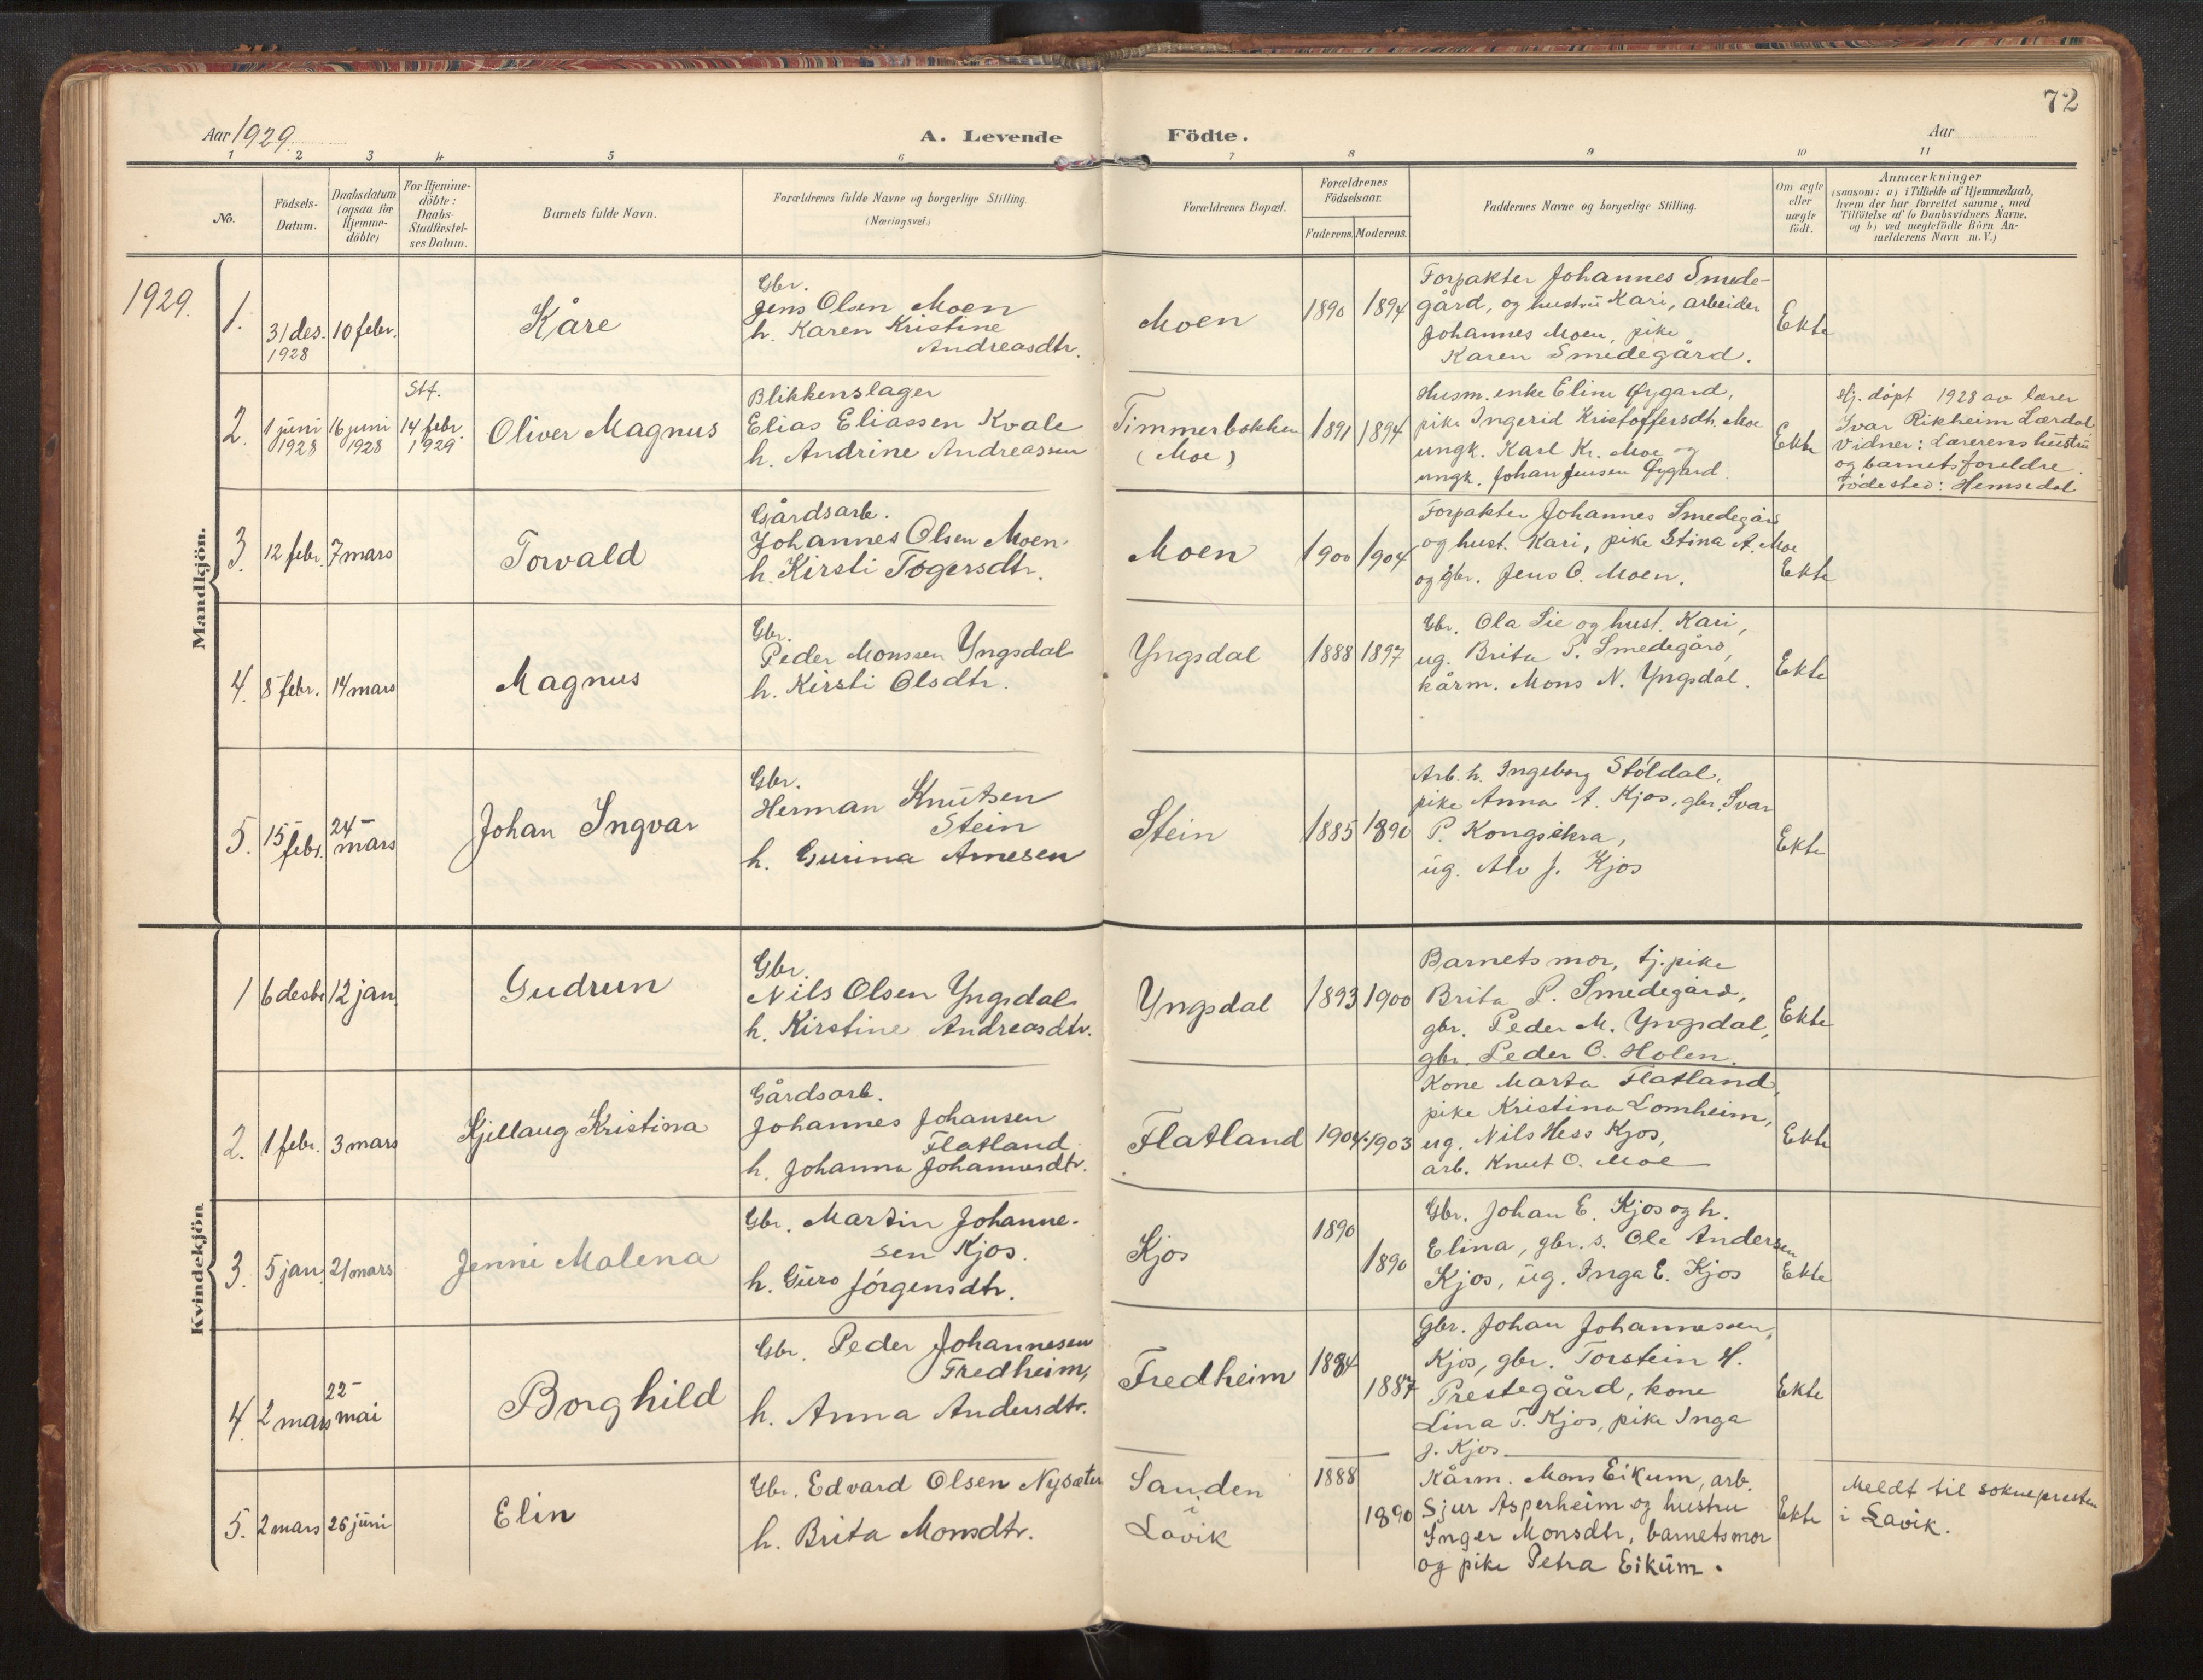 72
Aar 1929.
A. Levende Födte.
Aar
1 2 3 4 5 6 7 8 9 10 11
No.
Födsels-
Datum.
Daabsdatum
(ogsaa for
Hjemme-
döbte)
For Hjemme-
döbte:
Daabs-
Stadfæstel-
ses Datum.
Barnets fulde Navn.
Forældrenes fulde Navne og borgerlige Stilling.
(Næringsvei.)
Forældrenes Bopæl.
Forældrenes
Födselsaar.
Faderens. Moderens.
Faddernes Navne og borgerlige Stilling.
Om ægte
eller
uægte
födt.
Anmærkninger
(saasom: a) i Tilfælde af Hjemmedaab,
hvem der har forrettet samme, med
Tilföielse af to Daabsvidners Navne.
og b) ved uægtefödte Börn An-
melderens Navn m. V.)
1929.
Mandkjön.
1.
31 des.
1928
10 febr.
Kåre
Gbr.
Jens Olsen Moen
h. Karen Kristine
Andreasdtr.
Moen
1890 1894
Forpakter Johannes Smede-
gård, og hustru Kari, arbeider
Johannes Moen, pike
Karen Smedegård.
Ekte
2.
1 juni
1928
16 juni
1928
Stf.
14 febr.
1929
Oliver Magnus
Blikkenslager
Elias Eliassen Kvale
h. Andrine Andreassen
Timmerbakken
(Moe)
1891 1894
Husm. enke Eline Øygard,
pike Ingerid Kristoffersdtr. Moe
ungk. Karl Kr. Moe og
ungk. Johan Jensen Øygard
Ekte
Hj. döpt 1928 av lærer
Ivar Rikheim Lærdal
Vidner: Lærerens hustru
og barnets foreldre.
Födested: Hemsedal
3.
12 febr. 7 mars
Torvald
Gårdsarb.
Johannes Olsen Moen
h. Kirsti Tøgersdtr.
Moen
1900 1904
Forpakter Johannes Smedegård
og hust. Kari, pike Stina A. Moe
og gbr. Jens O. Moen.
Ekte
4.
8 febr. 14 mars
Magnus
Gbr.
Peder Monssen Yngsdal
h. Kirsti Olsdtr.
Yngsdal
1888 1897
Gbr. Ola Lie og hust. Kari,
ug. Brita P. Smedegård,
kårm. Mons N. Yngsdal.
Ekte
5.
15
febr.
24
mars
Johan Ingvar
Gbr.
Herman Knutsen
Stein
h. Gurina Arnesen
Stein
1885 1890
Arb. h. Ingeborg Stöldal,
pike Anna A. Kjos, gbr. Ivar
P. Kongsikra,
ug. Alv J. Kjos
Ekte
Kvindekjön
1
6 desbr 12 jan.
Gudrun
Gbr.
Nils Olsen Yngsdal
h. Kirstine Andreasdtr.
Yngsdal
1893 1900
Barnets mor, tj. pike
Brita P. Smedegård,
gbr. Peder M. Yngsdal,
gbr. Peder O. Holen.
Ekte
2.
1 febr. 3 mars
Kjellaug Kristina
Gårdsarb.
Johannes Johansen
Flatland
h. Johanna Johannesdtr.
Flatland
1904. 1903
Kone Marta Flatland,
pike Kristina Lomheim,
ug. Nils Hess Kjos,
arb. Knut O. Moe
Ekte
3.
5 jan. 21 mars
Jenni Malena
Gbr. Martin Johanne-
sen Kjos.
h. Guro Jörgensdtr.
Kjos
1890
1890
Gbr. Johan E. Kjos og h.
Elina, gbr. s. Ole Andersen
Kjos, ug. Inga E. Kjos
Ekte
4.
2 mars
22
mai
Borghild
Gbr. Peder Johannesen
Fredheim,
h. Anna Andersdtr.
Fredheim
1884
1887
Gbr. Johan Johannessen,
Kjos, gbr. Torstein H.
Prestegård, kone
Lina T. Kjos, pike Inga
J. Kjos
Ekte
5.
2 mars 26 juni
Elin
Gbr. Edvard Olsen Nysæter
h. Brita Monsdtr.
Sanden
i
Lavik
1888
1890
Kårm. Mons Eikum, arb.
Sjur Asperheim og hustru
Inger Monsdtr, barnets mor
og pike Petra Eikum.
Ekte
Meldt til sokneprester
i Lavik.